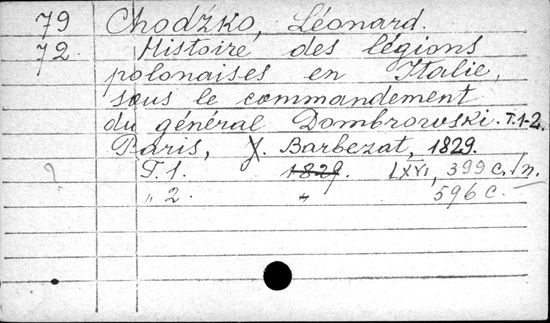 79 Chodźko, Léonard.
72. Histoire des légions
polonaises en Italie,
sous le commandement
du général Dombrowski. T.1-2.
Paris, J. Barbezat, 1829.
? T. 1. 1829. LXVI, 399 c. 1 n.
„ 2. „ 596 c. —